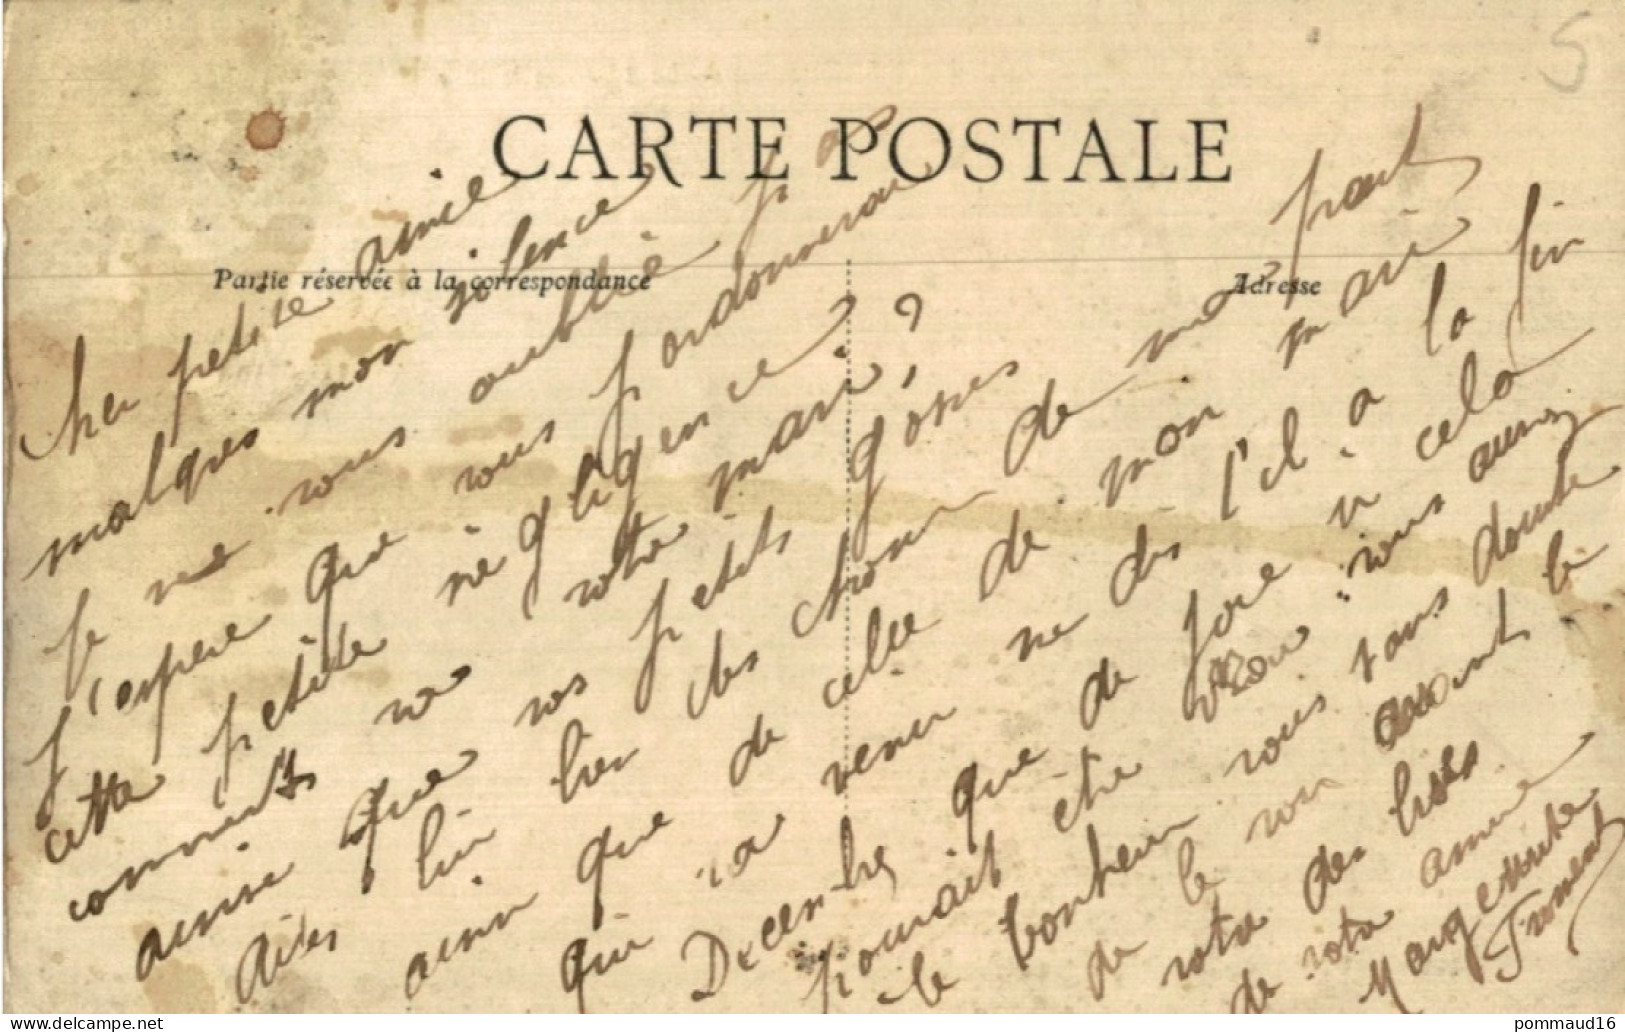 CARTE POSTALE
Partie réservée à la correspondance
Adresse
5
Cher petite amie
malgres mon silence
je ne vous oublie pas
j'espere que vous pardonnerai
cette petite négligence ?
comment va votre mari, ?
ainsi que vos petits gosses
dites lui bien des choses de ma part
ainsi que de celle de mon mari
qui va venu ne dis l'il a la fin
Decembre que de joie si cela
pouvait etre vrai vous aurez
le bonheur vous sans doute
de le voir avant le
vota des bises
de vota amie
Marguerite
Froment
delcampe.net
pommaud16